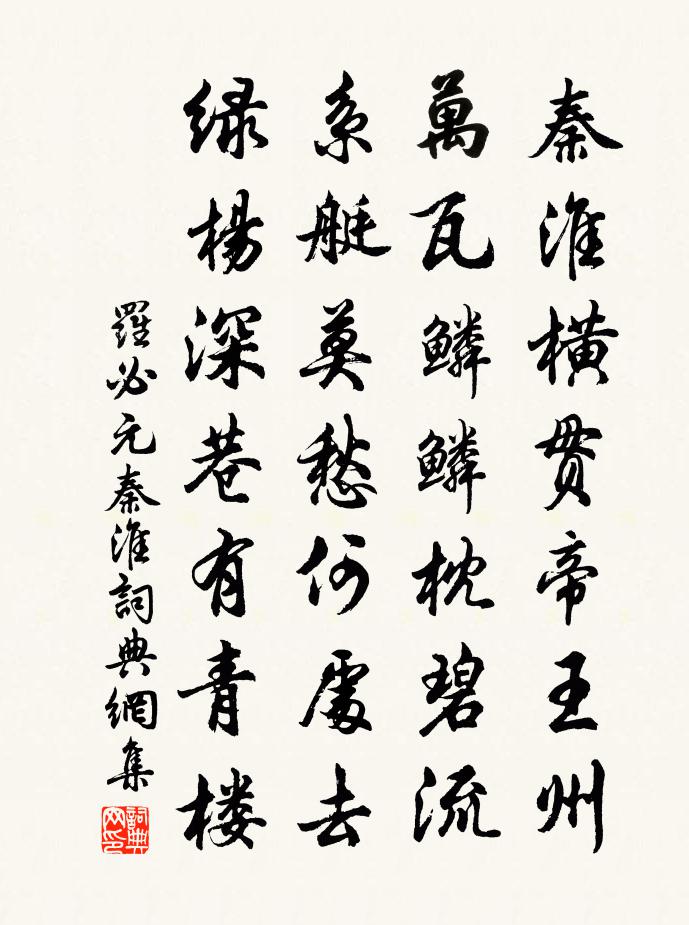 秦淮橫贯帝王州
萬瓦鳞鳞枕碧流
系艇莫愁何處去
绿楊深巷有青楼
羅必元秦淮詞典網集
詞典网印